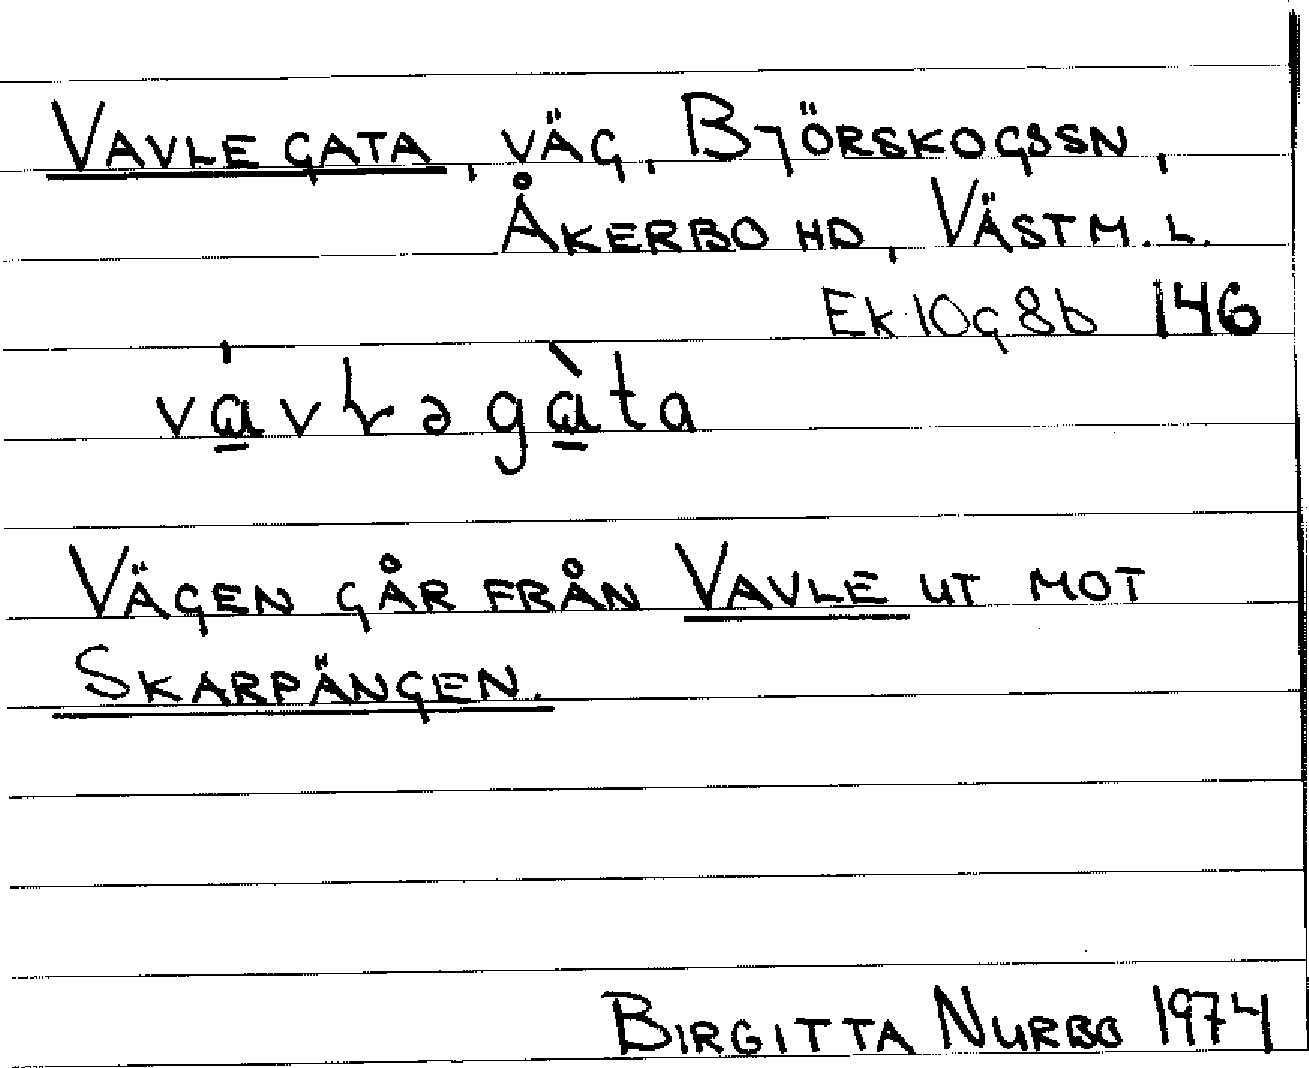 VAVLE GATA, VÄG, BJÖRSKOGSSN,
ÅKERBO HD, VÄSTM.L.
Ek 10g8b 146
VÄGEN GÅR FRÅN VAVLE UT MOT
SKARPÄNGEN.
BIRGITTA NURBO 1974